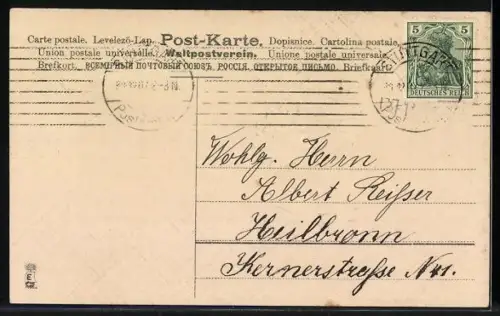 Carte postale. Levelező-Lap. Post-Karte. Dopisnice. Cartolina postale.
Union postale universelle. Weltpostverein. Unione postale universale.
Brefkort. ВСЕМІРНЫЙ ПОЧТОВЫЙ СОЮЗЪ. РОССІЯ. ОТКРЫТОЕ ПИСЬМО. Briefkaart.
5 5
STUTTGART
DEUTSCHES REICH
Wohlg. Herrn
Albert Reisser
Heilbronn
Kernerstraße No 41.